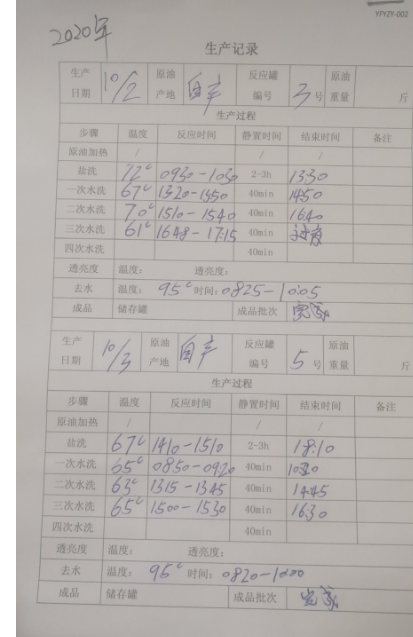 YFYZY-002
2020年
生产记录
生产日期 10/2 原油产地 自产 反应罐编号 3号 原油重量 斤
生产过程
步骤 温度 反应时间 静置时间 结束时间 备注
原油加热 / / /
盐洗 72℃ 0930-1030 2-3h 1330
一次水洗 67℃ 1320-1350 40min 1450
二次水洗 70℃ 1510-1540 40min 1640
三次水洗 61℃ 1648-1715 40min 过夜
四次水洗 40min
透亮度 温度: 透亮度:
去水 温度: 95℃ 时间: 0825-1005
成品 储存罐 成品批次
生产日期 10/3 原油产地 自产 反应罐编号 5号 原油重量 斤
生产过程
步骤 温度 反应时间 静置时间 结束时间 备注
原油加热 / / /
盐洗 67℃ 1410-1510 2-3h 1810
一次水洗 65℃ 0850-0920 40min 1020
二次水洗 63℃ 1315-1345 40min 1445
三次水洗 65℃ 1500-1530 40min 1630
四次水洗 40min
透亮度 温度: 透亮度:
去水 温度: 95℃ 时间: 0820-1000
成品 储存罐 成品批次